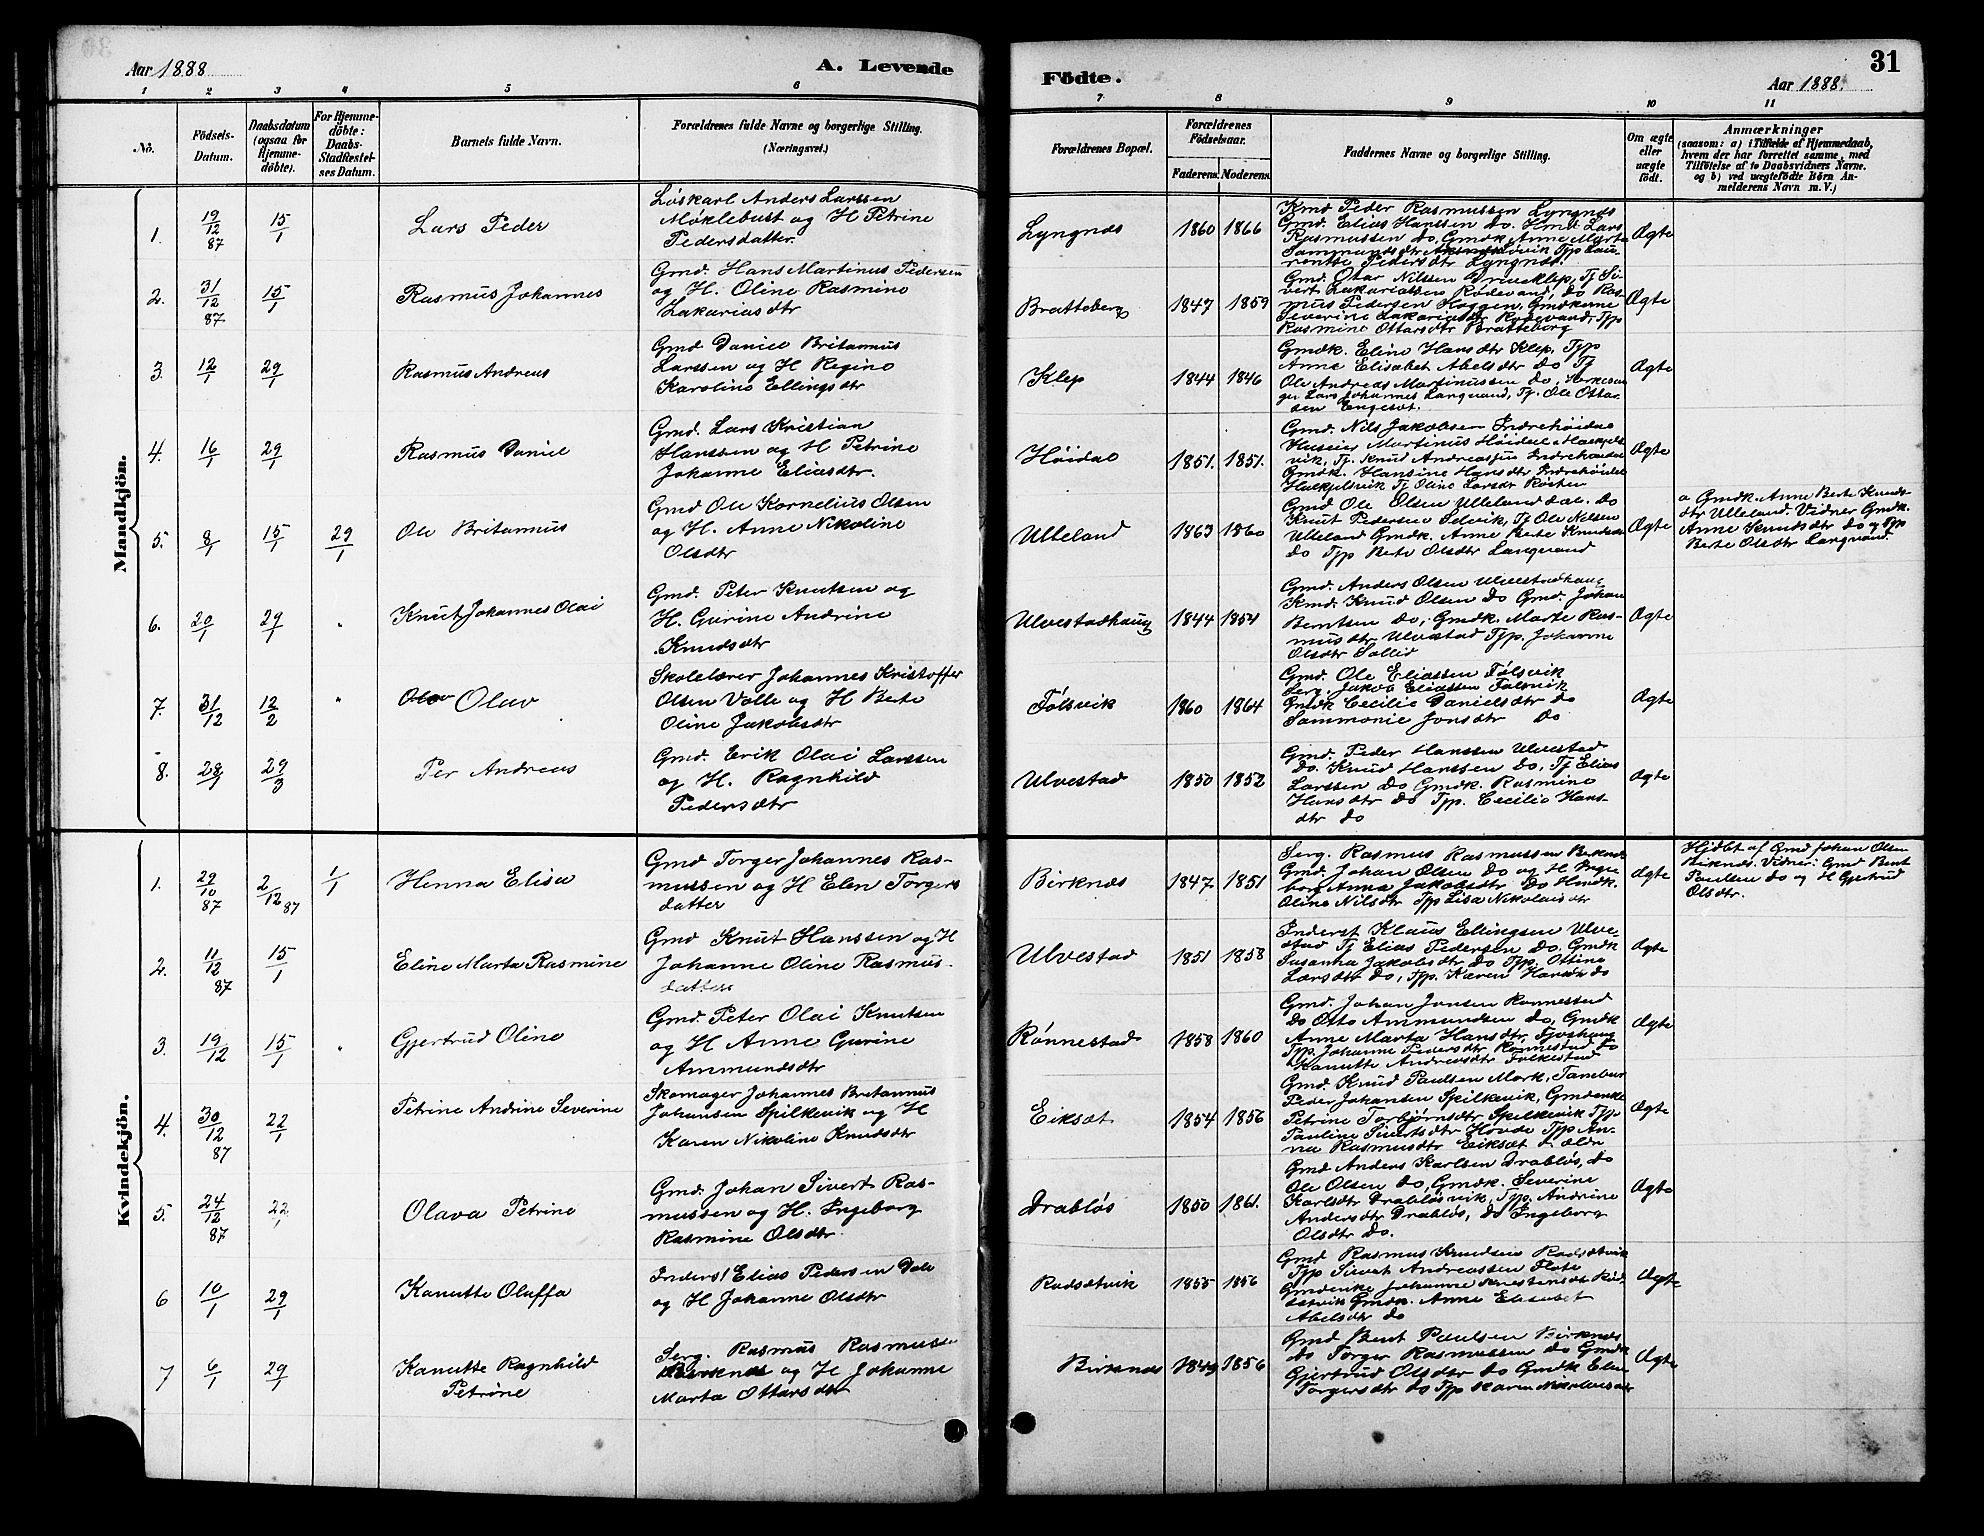 Aar 1888
A. Levende
1 2 3 4 5 6
Nô.
Födsels-
Datum.
Daabsdatum
(ogsaa for
Hjemme-
döbte).
For Hjemme-
döbte:
Daabs-
Stadfæstel-
ses Datum.
Barnets fulde Navn.
Forældrenes fulde Navne og borgerlige Stilling.
(Næringsvei.)
Mandkjön.
1. 19/12 87 15/1 Lars Peder
Løskarl Anders Larssen
Møklebust og H Petrine
Pedersdatter
2. 31/12 87 15/1 Rasmus Johannes
Gmd. Hans Martinus Pedersen
og H. Oline Rasmine
Zakariasdtr
3. 12/1 29/1 Rasmus Andreas
Gmd Daniel Britannus
Larssen og H Regine
Karoline Ellingsdtr
4. 16/1 29/1 Rasmus Daniel
Gmd. Lars Kristian
Hanssen og H Petrine
Johanne Eliasdtr.
5. 8/1 15/1 29/1 Ole Britannus
Gmd Ole Kornelius Olsen
og H. Anne Nikoline
Olsdtr
6. 20/1 29/1 " Knut Johannes Olai
Gmd. Peter Knutsen og
H. Gurine Andrine
Knudsdtr
7. 31/12 12/2 " Olav
Skolelærer Johannes Kristoffer
Olsen Valle og H Berte
Oline Jakobsdtr
8. 28/1 29/3 Per Andreas
Gmd. Erik Olai Larssen
og H. Ragnhild
Pedersdtr
Kvindekjön.
1. 29/10 87 2/12 87 1/1 Henna Elisa
Gmd Torger Johannes Ras-
mussen og H Elen Torgers
datter
2. 11/12 87 15/1 Eline Marta Rasmine
Gmd Knut Hanssen og H
Johanne Oline Rasmus-
datter
3. 19/12 15/1 " Gjertrud Oline
Gmd. Peter Olai Knutsen
og H Anne Gurine
Ammundsdtr
4. 30/12 87 22/1 Petrine Andrine Severine
Skomager Johannes Britannus
Johansen Spilkevik og H
Karen Nikoline Knudsdtr
5. 24/12 87 22/1 Olava Petrine
Gmd. Johan Sivert Ras-
mussen og H. Ingeborg
Rasmine Olsdtr.
6 10/1 29/1 Kanutte Oluffa
Inderst Elias Pedersen Dale
og H Johanne Olsdtr
7 6/1 29/1 Kanutte Ragnhild
Petrine
Serg. Rasmus Rasmussen
Birknes og H Johanne
Marta Ottarsdtr
Födte.
31
Aar 1888.
7 8 9 10 11
Forældrenes Bopæl.
Forældrenes
Födselsaar.
Faderens. Moderens.
Faddernes Navne og borgerlige Stilling.
Om ægte
eller
uægte
födt.
Anmærkninger
(saasom: a) i Tilfælde af Hjemmedaab,
hvem der har forrettet samme, med
Tilföielse af to Daabsvidners Navne.
og b) ved uægtefödte Börn An-
melderens Navn m. V.)
Lyngnes 1860 1866
Kmd Peder Rasmussen Lyngnes
Gmd. Elias Hanssen do. Hmd Lars
Rasmussen do, Gmdk Anne Marta
Sammundsdtr Tjp Lau-
rentse Pedersdtr Lyngnes.
Ægte
Bratteberg 1847 1859
Gmd. Otar Nilssen Tj Si-
vert Zakariassen Rødevand, do Ras-
mus Pedersen Haggen, Gmdkerne
Severine Zakariasdtr Rødevand, Tjp
Rasmine Ottarsdtr Bratteberg
Ægte
Klep 1844 1846
Gmdk. Eline Hansdtr Klep. Tjp
Anne Elisabet Abelsdtr do Tj
Ole Andreas Martinussen do,
Lars Johannes Langvand, Tj. Ole Ottar-
sen Engeset.
Ægte
Höidal 1851. 1851.
Gmd. Nils Jakobsen Indrehöidal
Martinus Höidal
vik, Tj. Knud Indrehöidal
Gmdk. Hansine Hansdtr Indrehöidal
Tj Oline Larsdtr Røsten
Ægte
Ulleland 1863 1860
Gmd Ole Olsen Ulleland do
Knut Pedersen Solvik, Tj Ole Nilsen
Ulleland Gmdk. Anne Berte Knudsdtr
do Tjp Berte Olsdtr Langvand
Ægte
a Gmdk. Anne Berte Knuds-
dtr Ulleland. Vidner Gmdk.
Anne Knudsdtr do og Tjp
Berte Olsdtr Langvand.
Ulvestadhaug 1844 1854
Gmd. Anders Olsen Ulvestadhaug
Kmd. Knud Olsen do Gmd. Johan
Berntsen do, Gmdk. Marte Ras-
musdtr Ulvestad Tjp. Johanne
Olsdtr Sollid
Ægte
Følsvik 1860 1864
Gmd. Ole Eliassen Følsvik
Serg. Jakob Eliassen Følsvik
Gmdk Cecilie Danielsdtr do
Sammonie Jonsdtr do
Ægte
Ulvestad 1850 1852
Gmd. Peder Hanssen Ulvestad
do. Knud Hanssen do, Tj Elias
Larssen do Gmdk. Rasmine
Hansdtr do Tjp. Cecilie Hans-
dtr do
Ægte
Birknes 1847 1851
Serg. Rasmus Rasmussen Birknes
Gmd. Johan Olsen do og H Inge-
borg Anna Jakobsdtr do Hmdk.
Oline Nilsdtr Tjp Lisa Nikolaisdtr
Ægte
Hjdbt af Gmd Johan Olsen
Birknes. Vidner: Gmd Bent
Paulsen do og H Gjertrud
Olsdtr.
Ulvestad 1851 1858
Inderst Klaus Ellingsen Ulve-
stad Tj Elias Pedersen do, Gmdk
Susanna Jakobsdtr do Tjp. Ottine
Larsdtr do, Tjp. Karen Hansdtr do
Ægte
Rønnestad 1858 1860
Gmd. Johan Jonsen Rønnestad
do Otto Ammundsen do, Gmdk
Anne Marta Hansdtr,
Tjp. Johanne Pedersdtr Rønnestad do
Kanutte Andreasdtr Folkestad
Ægte
Eiksæt 1854 1856
Gmd. Knud Paulsen Mork,
Peder Johansen Spilkevik, Gmdenke
Petrine Torbjørnsdtr Spilkevik Tjp.
Pauline Sivertsdtr Hovde Tjp An-
na Rasmusdtr Eiksæt d. ældre
Ægte
Drabløs 1850 1861.
Gmd Anders Karlsen Drabløs, do
Ole Olsen do, Gmdk. Severine
Karlsdtr Drabløsvik, Tjp. Andrine
Andersdtr Drabløs, do Ingeborg
Olsdtr do.
Ægte
Rødsætvik 1855 1856
Gmd Rasmus Knudsen Rødsætvik
Tjp Sivert Andreassen Flote
Gmdenke Johanne Rød-
sætvik Gmdk. Anne Elisabet
Abelsdtr do
Ægte
Birknes 1849 1856
Gmd Bent Paulsen Birknes
do Torger Rasmussen do Gmdk
Gjertrud Olsdtr do Gmdk Elen
Torgersdtr do Tjp Karen Nikolaisdtr
Ægte